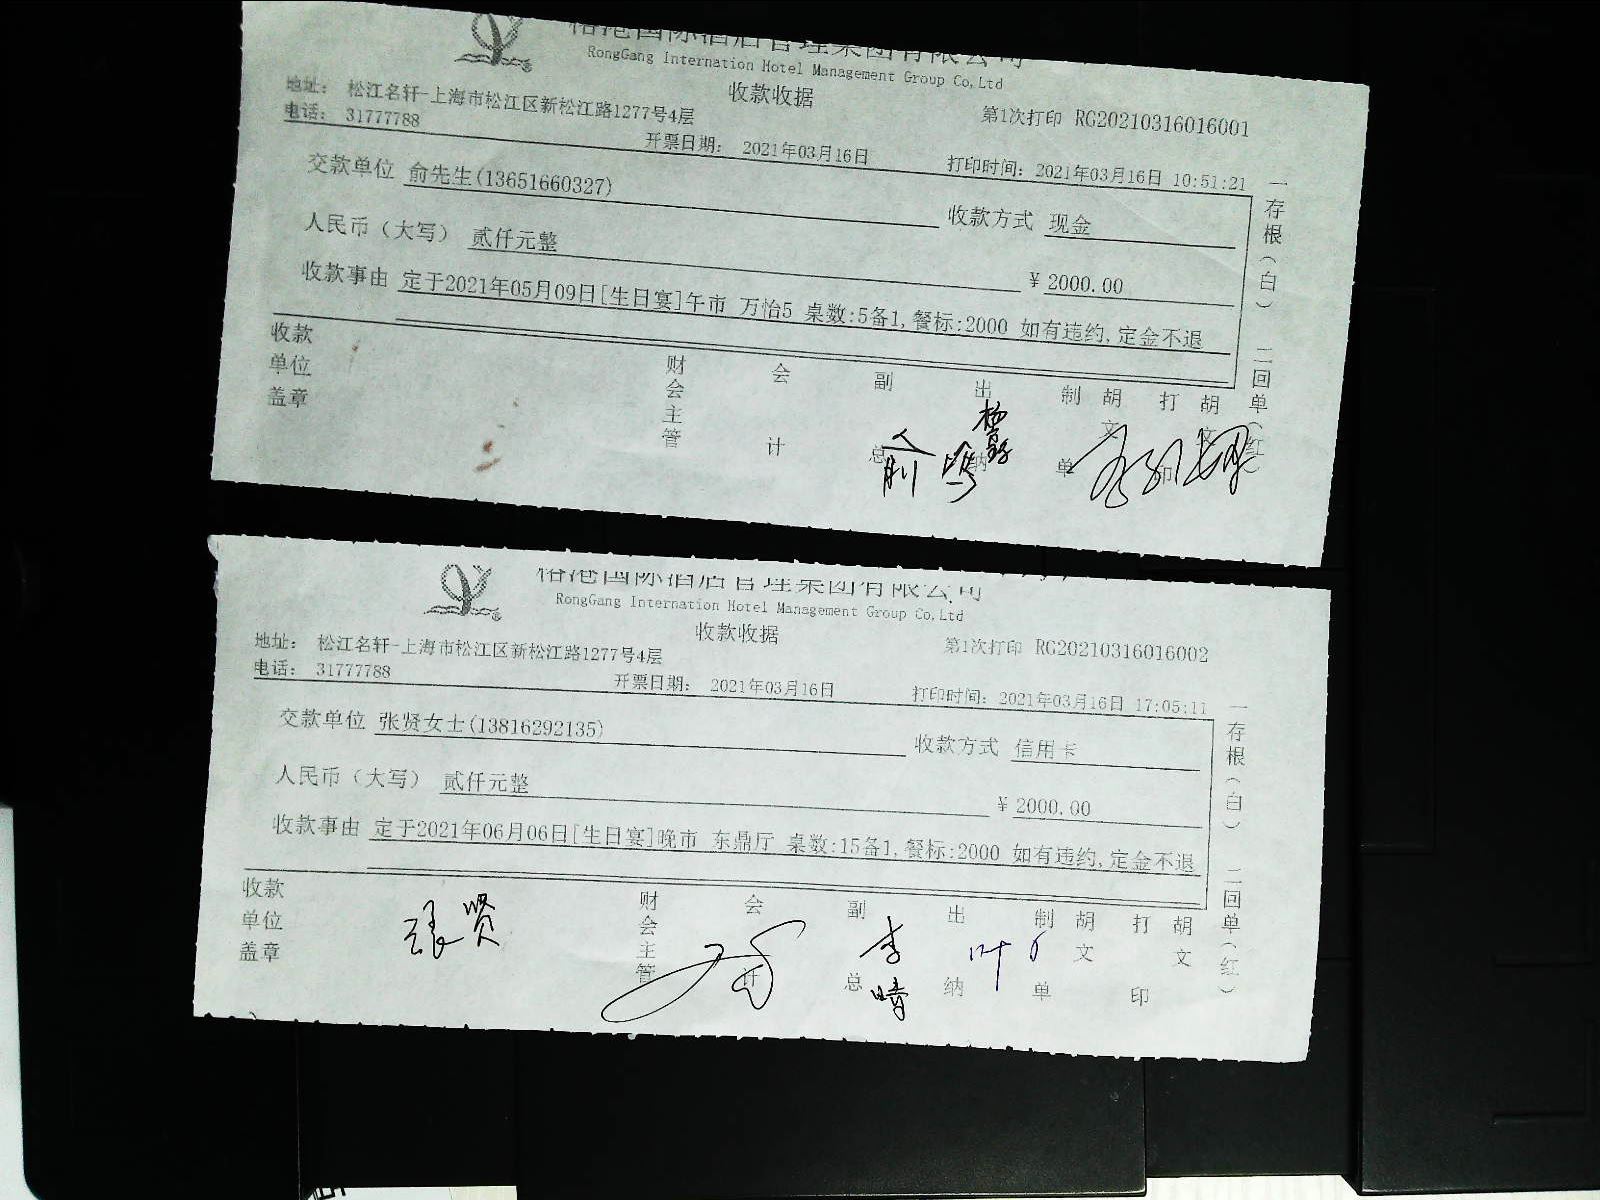 榕港国际酒店管理集团有限公司
RongGang Internation Hotel Management Group Co,Ltd
收款收据
地址： 松江名轩-上海市松江区新松江路1277号4层
第1次打印 RG20210316016001
电话： 31777788
开票日期： 2021年03月16日
打印时间：2021年03月16日 10:51:21
交款单位 俞先生(13651660327)
收款方式 现金
人民币（大写） 贰仟元整
¥ 2000.00
收款事由 定于2021年05月09日[生日宴]午市 万怡5 桌数:5备1,餐标:2000 如有违约,定金不退
一存根（白） 二回单（红）
收款单位盖章
财会主管
会计
副总
出纳
制单
胡文
打印
胡文
榕港国际酒店管理集团有限公司
RongGang Internation Hotel Management Group Co,Ltd
收款收据
地址： 松江名轩-上海市松江区新松江路1277号4层
第1次打印 RG20210316016002
电话： 31777788
开票日期： 2021年03月16日
打印时间：2021年03月16日 17:05:11
交款单位 张贤女士(13816292135)
收款方式 信用卡
人民币（大写） 贰仟元整
¥ 2000.00
收款事由 定于2021年06月06日[生日宴]晚市 东鼎厅 桌数:15备1,餐标:2000 如有违约,定金不退
一存根（白） 二回单（红）
收款单位盖章
張贤
财会主管
会计
副总
李晴
出纳
叶
制单
胡文
打印
胡文